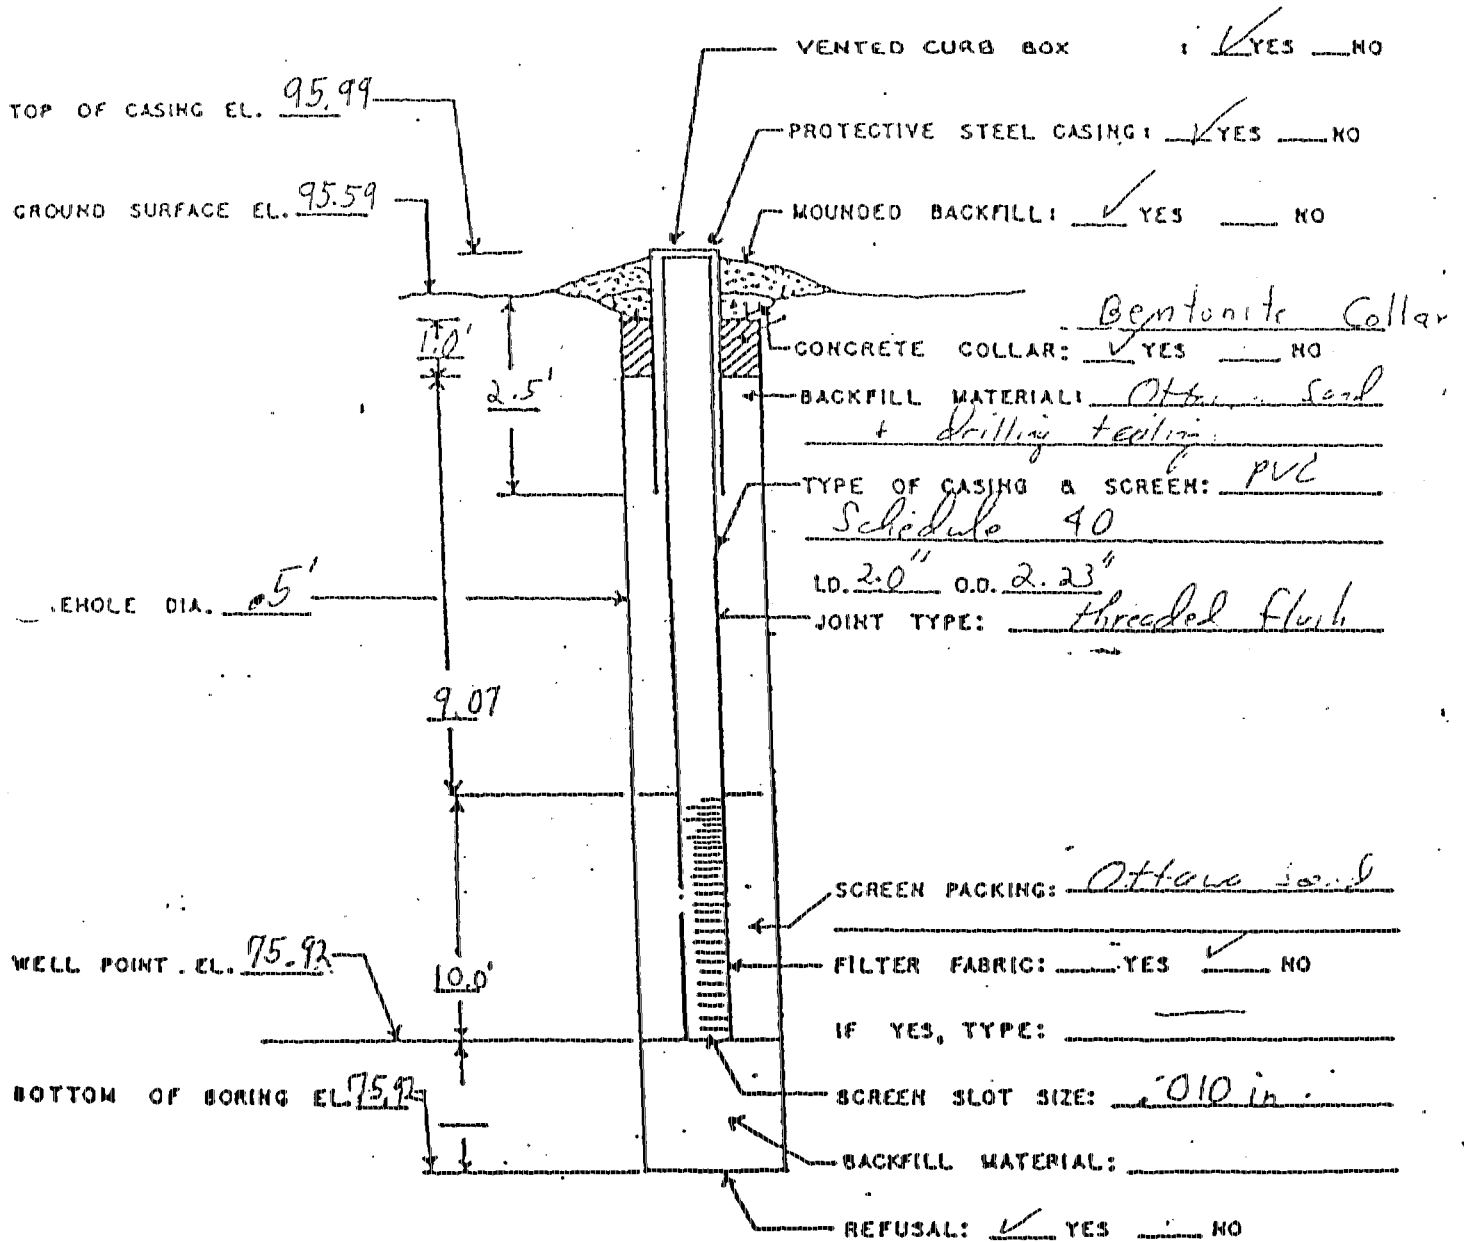 VENTED CURB BOX : ✓ YES NO
TOP OF CASING EL. 95.99
PROTECTIVE STEEL CASING: ✓ YES NO
GROUND SURFACE EL. 95.59
MOUNDED BACKFILL: ✓ YES NO
Bentonite Collar
1.0'
CONCRETE COLLAR: ✓ YES NO
2.5'
BACKFILL MATERIAL: Ottawa Sand
+ drilling tailing
TYPE OF CASING & SCREEN: PVC
Schedule 40
I.D. 2.0" O.D. 2.23"
EHOLE DIA. .5'
JOINT TYPE: threaded flush
9.07
SCREEN PACKING: Ottawa sand
WELL POINT EL. 75.92
10.0'
FILTER FABRIC: YES ✓ NO
IF YES, TYPE: —
BOTTOM OF BORING EL. 75.92
SCREEN SLOT SIZE: .010 in.
BACKFILL MATERIAL:
REFUSAL: ✓ YES NO